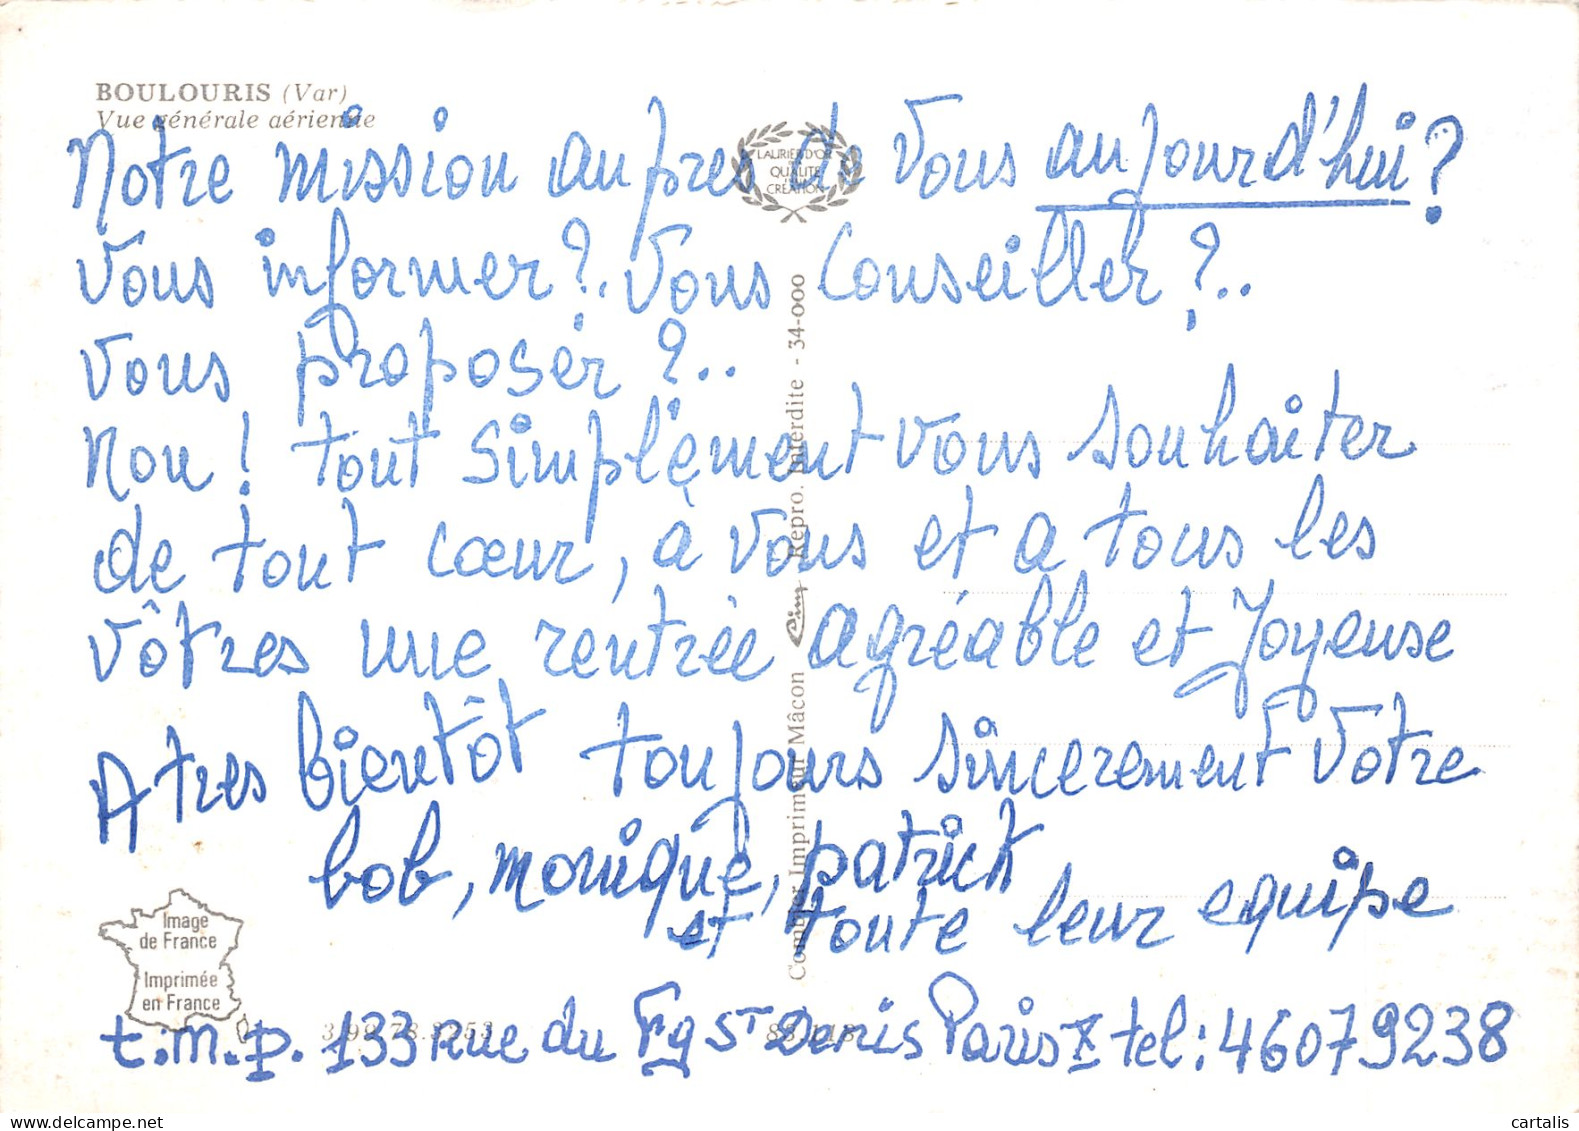 BOULOURIS (Var)
Vue générale aérienne
LAURIER D'OR
QUALITÉ
CRÉATION
Notre mission aupres de vous aujourd'hui ?
Vous informer ?.. Vous conseiller ?..
Vous proposer ?..
Non ! tout simplement vous souhaiter
de tout cœur, à vous et a tous les
vôtres une rentrée agréable et Joyeuse
A tres bientôt toujours sincerement votre
bob, monique, patrick
et toute leur equipe
t.m.p. 133 rue du Fg ST Denis Paris X tel : 46079238
Combier Imprimeur Mâcon Cim Repro. Interdite - 34-000
Image
de France
Imprimée
en France
cartalis